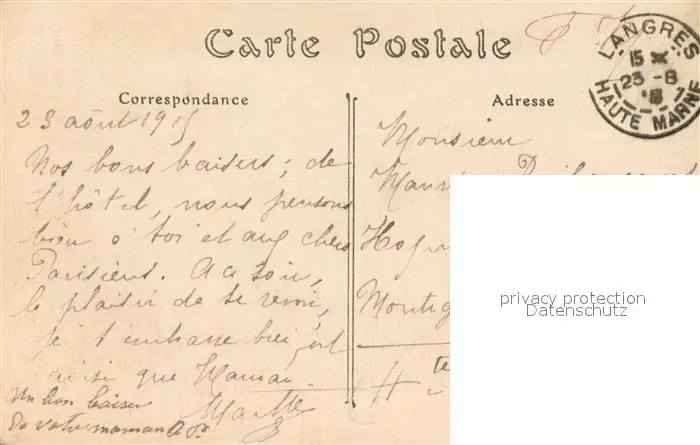 Carte Postale
LANGRES
15
23-8
HAUTE MARNE
Correspondance
23 août 1915
Nos bons baisers ; de
l'hôtel, nous pensons
bien à toi et aux chers
Parisiens. A ce soir,
le plaisir de te revoir,
je t'embrasse bien fort
ainsi que Maman
Un bon baiser
de votre maman
Adresse
Monsieur
privacy protection
Datenschutz
H te